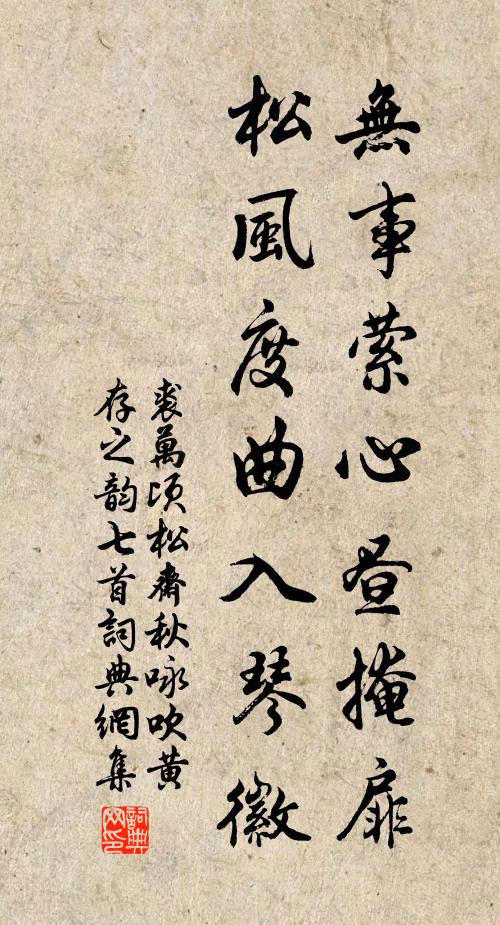 無事縈心晝掩扉
松風度曲入琴徽
裘萬頃松齋秋咏吹黄
存之韵七首詞典網集
詞典网印